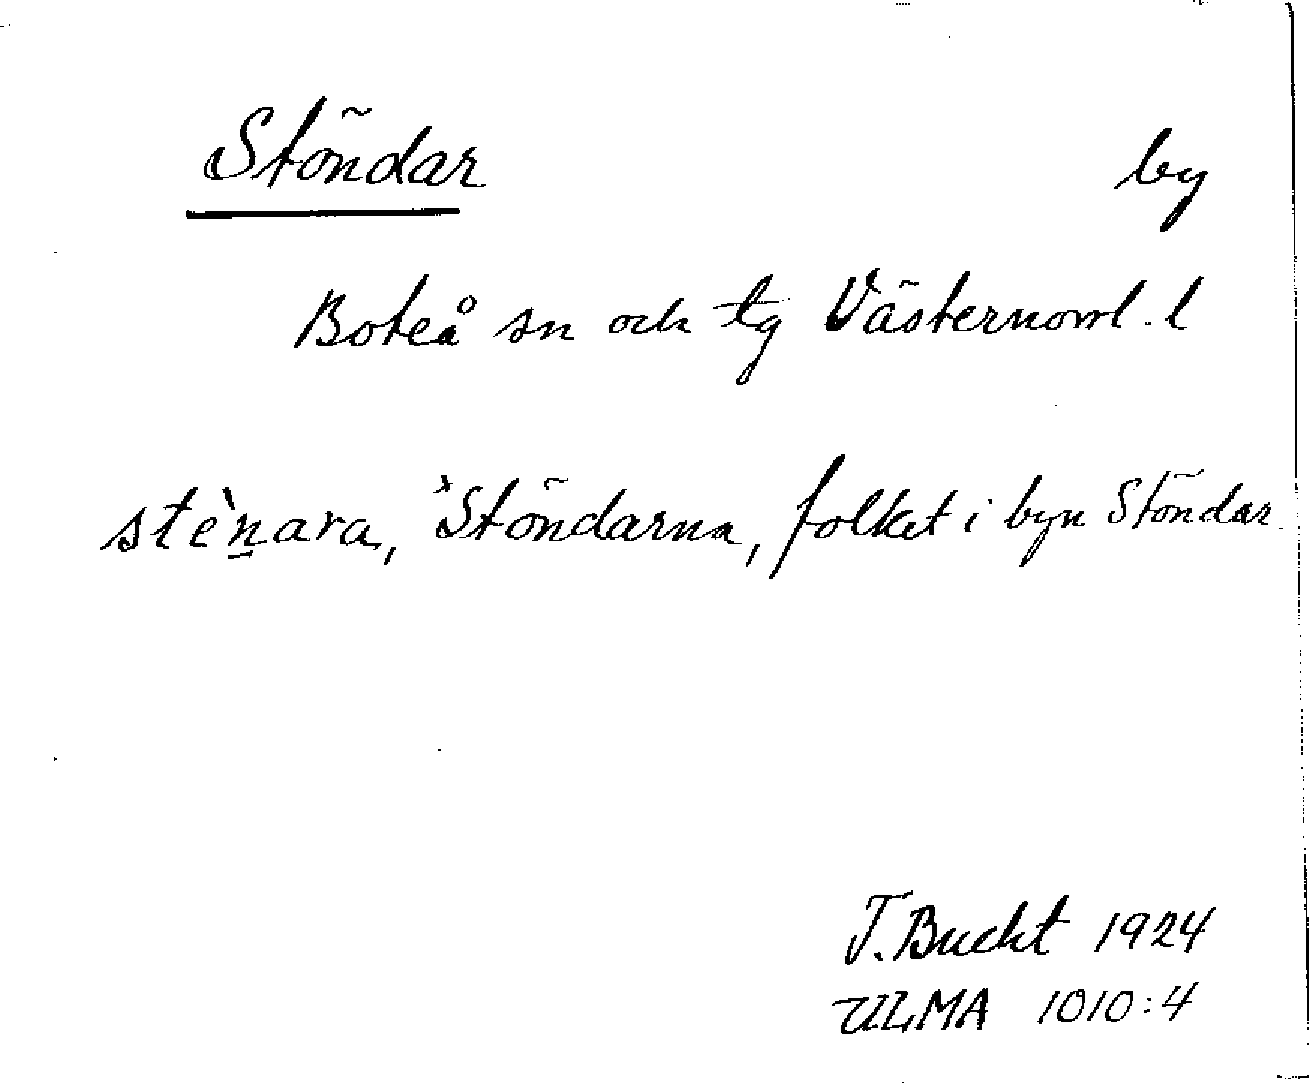 Stöndar by
Boteå sn och tg Västernorrl. l
stè̱nara, "Stöndarna, folket i byn Stöndar
T. Bucht 1924
ULMA 1010:4